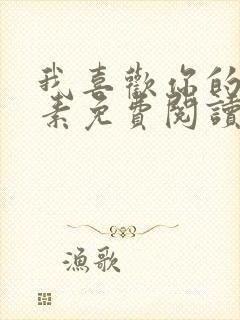 我喜歡你的
素免費閱讀
漁歌